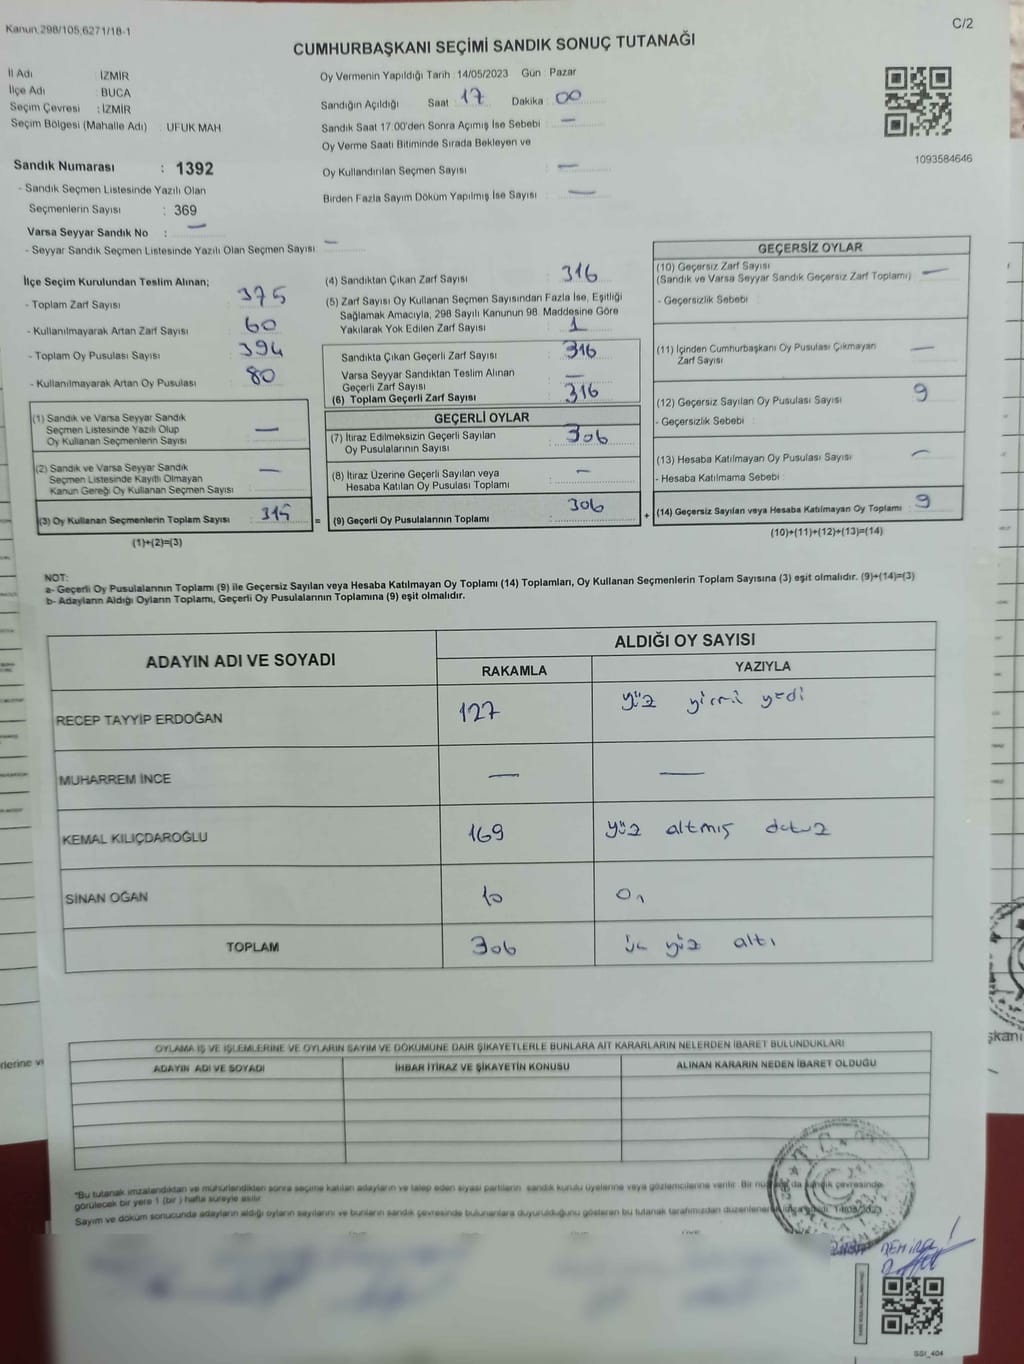 Kanun,298/105,6271/18-1
C/2
CUMHURBAŞKANI SEÇİMİ SANDIK SONUÇ TUTANAĞI
İl Adı İZMİR
İlçe Adı BUCA
Seçim Çevresi : İZMİR
Seçim Bölgesi (Mahalle Adı) : UFUK MAH
Oy Vermenin Yapıldığı Tarih : 14/05/2023 Gün : Pazar
Sandığın Açıldığı Saat : 17 Dakika : 00
Sandık Saat 17.00'den Sonra Açımış İse Sebebi : —
Oy Verme Saati Bitiminde Sırada Bekleyen ve
Oy Kullandırılan Seçmen Sayısı : —
Birden Fazla Sayım Döküm Yapılmış İse Sayısı : —
1093584646
Sandık Numarası : 1392
- Sandık Seçmen Listesinde Yazılı Olan
Seçmenlerin Sayısı : 369
Varsa Seyyar Sandık No : —
- Seyyar Sandık Seçmen Listesinde Yazılı Olan Seçmen Sayısı : —
İlçe Seçim Kurulundan Teslim Alınan;
- Toplam Zarf Sayısı : 375
- Kullanılmayarak Artan Zarf Sayısı : 60
- Toplam Oy Pusulası Sayısı : 394
- Kullanılmayarak Artan Oy Pusulası : 80
(1) Sandık ve Varsa Seyyar Sandık
Seçmen Listesinde Yazılı Olup
Oy Kullanan Seçmenlerin Sayısı : —
(2) Sandık ve Varsa Seyyar Sandık
Seçmen Listesinde Kayıtlı Olmayan
Kanun Gereği Oy Kullanan Seçmen Sayısı : —
(3) Oy Kullanan Seçmenlerin Toplam Sayısı : 315 =
(1)+(2)=(3)
(4) Sandıktan Çıkan Zarf Sayısı : 316
(5) Zarf Sayısı Oy Kullanan Seçmen Sayısından Fazla İse, Eşitliği
Sağlamak Amacıyla, 298 Sayılı Kanunun 98. Maddesine Göre
Yakılarak Yok Edilen Zarf Sayısı : 1
Sandıkta Çıkan Geçerli Zarf Sayısı : 316
Varsa Seyyar Sandıktan Teslim Alınan
Geçerli Zarf Sayısı : —
(6) Toplam Geçerli Zarf Sayısı : 316
GEÇERLİ OYLAR
(7) İtiraz Edilmeksizin Geçerli Sayılan
Oy Pusulalarının Sayısı : 306
(8) İtiraz Üzerine Geçerli Sayılan veya
Hesaba Katılan Oy Pusulası Toplamı : —
(9) Geçerli Oy Pusulalarının Toplamı : 306 +
GEÇERSİZ OYLAR
(10) Geçersiz Zarf Sayısı
(Sandık ve Varsa Seyyar Sandık Geçersiz Zarf Toplamı) : —
- Geçersizlik Sebebi :
(11) İçinden Cumhurbaşkanı Oy Pusulası Çıkmayan
Zarf Sayısı : —
(12) Geçersiz Sayılan Oy Pusulası Sayısı : 9
- Geçersizlik Sebebi :
(13) Hesaba Katılmayan Oy Pusulası Sayısı : —
- Hesaba Katılmama Sebebi :
(14) Geçersiz Sayılan veya Hesaba Katılmayan Oy Toplamı : 9
(10)+(11)+(12)+(13)=(14)
NOT:
a- Geçerli Oy Pusulalarının Toplamı (9) ile Geçersiz Sayılan veya Hesaba Katılmayan Oy Toplamı (14) Toplamları, Oy Kullanan Seçmenlerin Toplam Sayısına (3) eşit olmalıdır. (9)+(14)=(3)
b- Adayların Aldığı Oyların Toplamı, Geçerli Oy Pusulalarının Toplamına (9) eşit olmalıdır.
ADAYIN ADI VE SOYADI ALDIĞI OY SAYISI
RAKAMLA YAZIYLA
RECEP TAYYİP ERDOĞAN 127 yüz yirmi yedi
MUHARREM İNCE — —
KEMAL KILIÇDAROĞLU 169 yüz altmış dokuz
SİNAN OĞAN 10 On
TOPLAM 306 üç yüz altı
OYLAMA İŞ VE İŞLEMLERİNE VE OYLARIN SAYIM VE DÖKÜMÜNE DAİR ŞİKAYETLERLE BUNLARA AİT KARARLARIN NELERDEN İBARET BULUNDUKLARI
ADAYIN ADI VE SOYADI İHBAR İTİRAZ VE ŞİKAYETİN KONUSU ALINAN KARARIN NEDEN İBARET OLDUĞU
"Bu tutanak imzalandıktan ve mühürlendikten sonra seçime katılan adayların ve talep eden siyasi partilerin sandık kurulu üyelerine veya gözlemcilerine verilir. Bir da sandık çevresinde
görülecek bir yere 1 (bir) hafta süreyle asılır.
Sayım ve döküm sonucunda adayların aldığı oyların sayılarını ve bunların sandık çevresinde bulunanlara duyurulduğunu gösteren bu tutanak tarafımızdan
T.C.
DEMİREL
SSİ_404